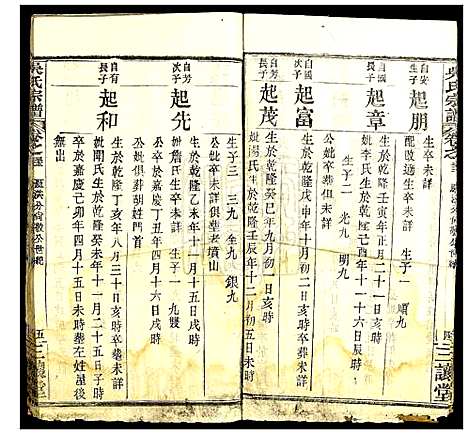 吳氏宗譜
自安
生子
起朋
配敗適生卒未詳
生子一
順九
自國
長子
起章
生於乾隆壬寅年正月二十一日亥時
妣李氏生於乾隆己酉年十一月初三日亥時
公妣卒葬俱未詳
生子二
光九
明九
自國
次子
起富
生於乾隆戊申年十月初二日亥時卒葬未詳
自芳
長子
起茂
生於乾隆癸巳年九月初一日亥時
妣湯氏生於乾隆壬辰年十二月初五日未時
三讓堂
吳氏宗譜
公妣卒未詳俱葬老墳山
生子三
三九
全九
銀九
自芳
次子
起先
生於乾隆乙未年十一月十五日戌時
妣詹氏生卒未詳
生子一
九雙
卒於嘉慶丁丑年四月十六日戌時
公妣俱葬胡姓門首
自有
長子
起和
生於乾隆丁亥年八月三十日亥時卒葬未詳
妣閔氏生於乾隆癸未年十一月二十五日子時
卒於嘉慶己卯年四月十五日未時葬左姓屋後
無出
五
三讓堂